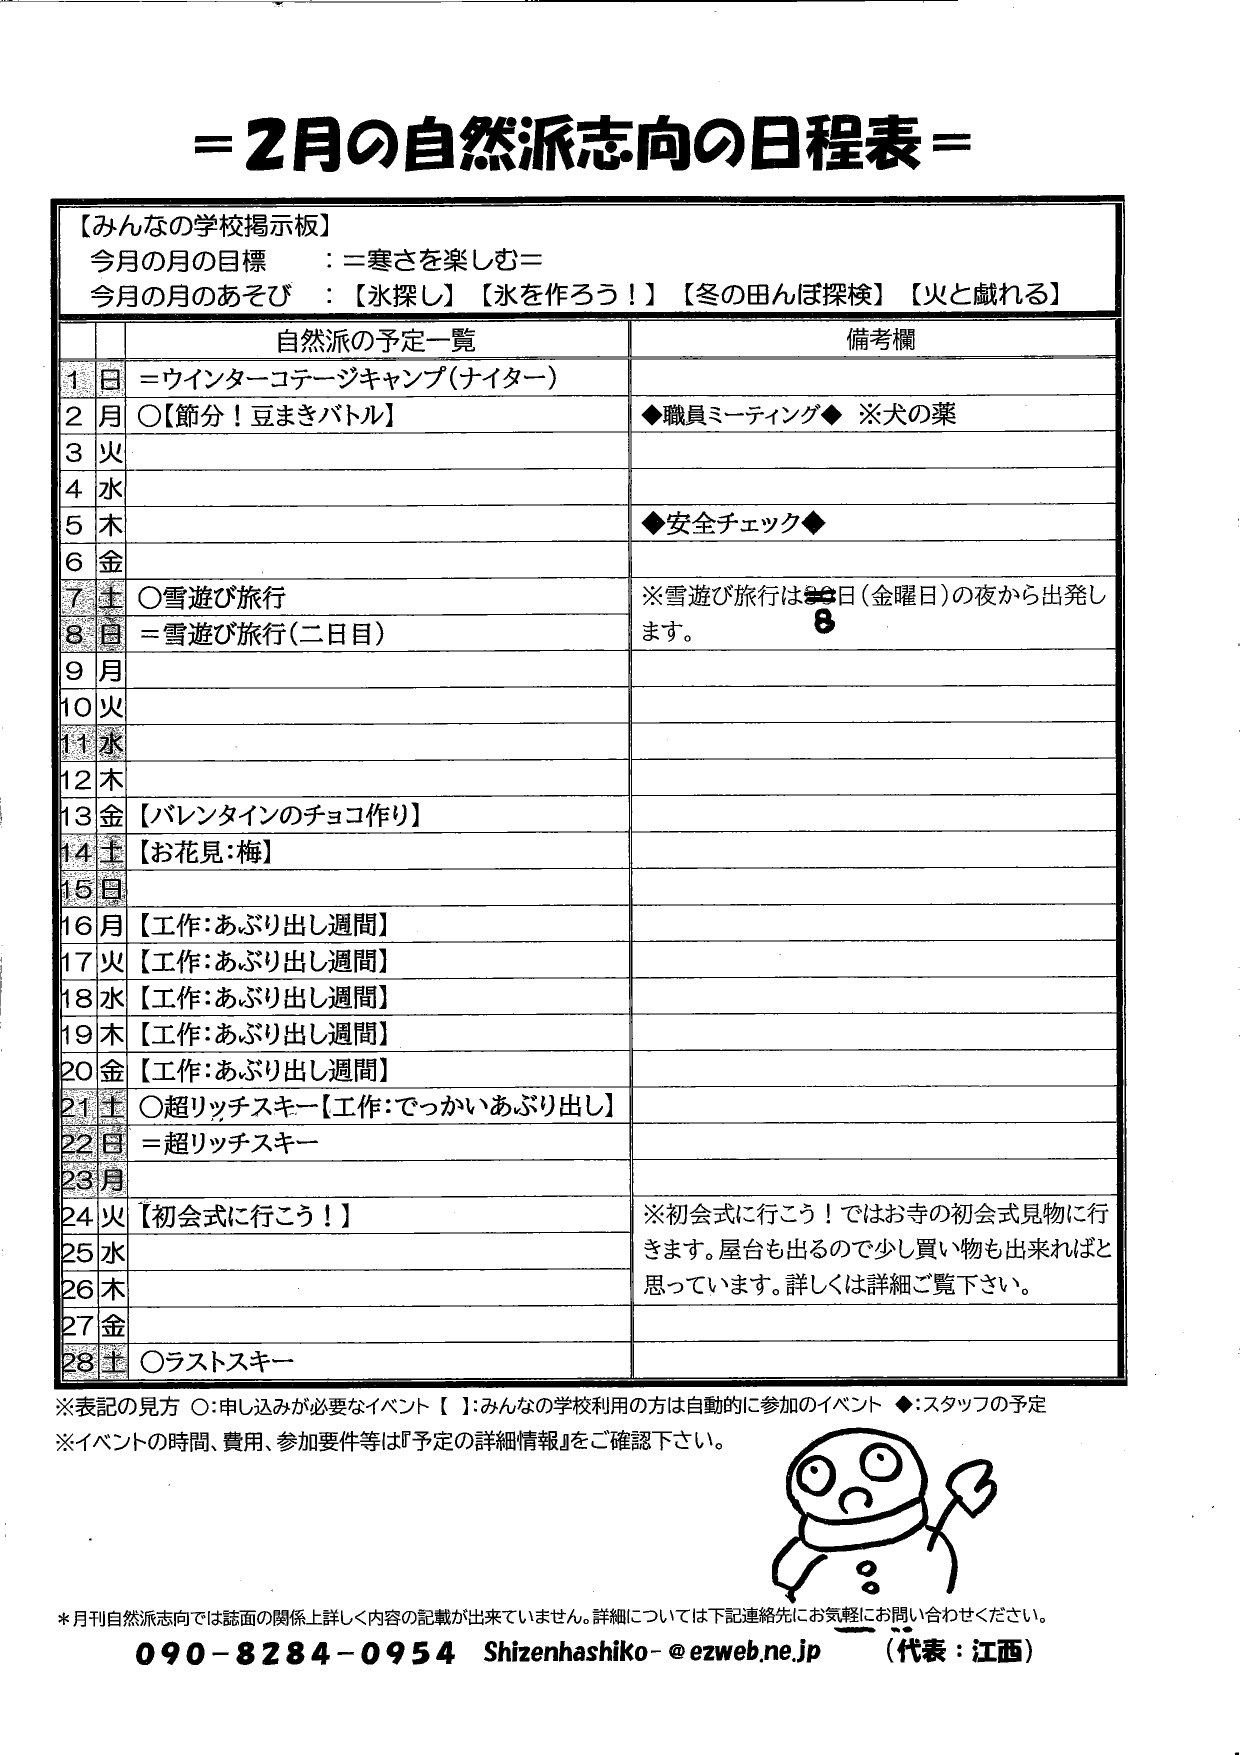 =2月の自然派志向の日程表=
【みんなの学校掲示板】
今月の月の目標 :=寒さを楽しむ=
今月の月のあそび :【氷探し】【氷を作ろう!】【冬の田んぼ探検】【火と戯れる】
自然派の予定一覧 備考欄
1 日 =ウインターコテージキャンプ(ナイター)
2 月 ○【節分!豆まきバトル】 ◆職員ミーティング◆ ※犬の薬
3 火
4 水
5 木 ◆安全チェック◆
6 金
7 土 ○雪遊び旅行 ※雪遊び旅行は日(金曜日)の夜から出発し
8
8 日 =雪遊び旅行(二日目) ます。
9 月
10 火
11 水
12 木
13 金 【バレンタインのチョコ作り】
14 土 【お花見:梅】
15 日
16 月 【工作:あぶり出し週間】
17 火 【工作:あぶり出し週間】
18 水 【工作:あぶり出し週間】
19 木 【工作:あぶり出し週間】
20 金 【工作:あぶり出し週間】
21 土 ○超リッチスキー【工作:でっかいあぶり出し】
22 日 =超リッチスキー
23 月
24 火 【初会式に行こう!】 ※初会式に行こう!ではお寺の初会式見物に行
25 水 きます。屋台も出るので少し買い物も出来ればと
26 木 思っています。詳しくは詳細ご覧下さい。
27 金
28 土 ○ラストスキー
※表記の見方 ○:申し込みが必要なイベント【 】:みんなの学校利用の方は自動的に参加のイベント ◆:スタッフの予定
※イベントの時間、費用、参加要件等は『予定の詳細情報』をご確認下さい。
*月刊自然派志向では誌面の関係上詳しく内容の記載が出来ていません。詳細については下記連絡先にお気軽にお問い合わせください。
090-8284-0954 Shizenhashiko-@ezweb.ne.jp (代表:江西)